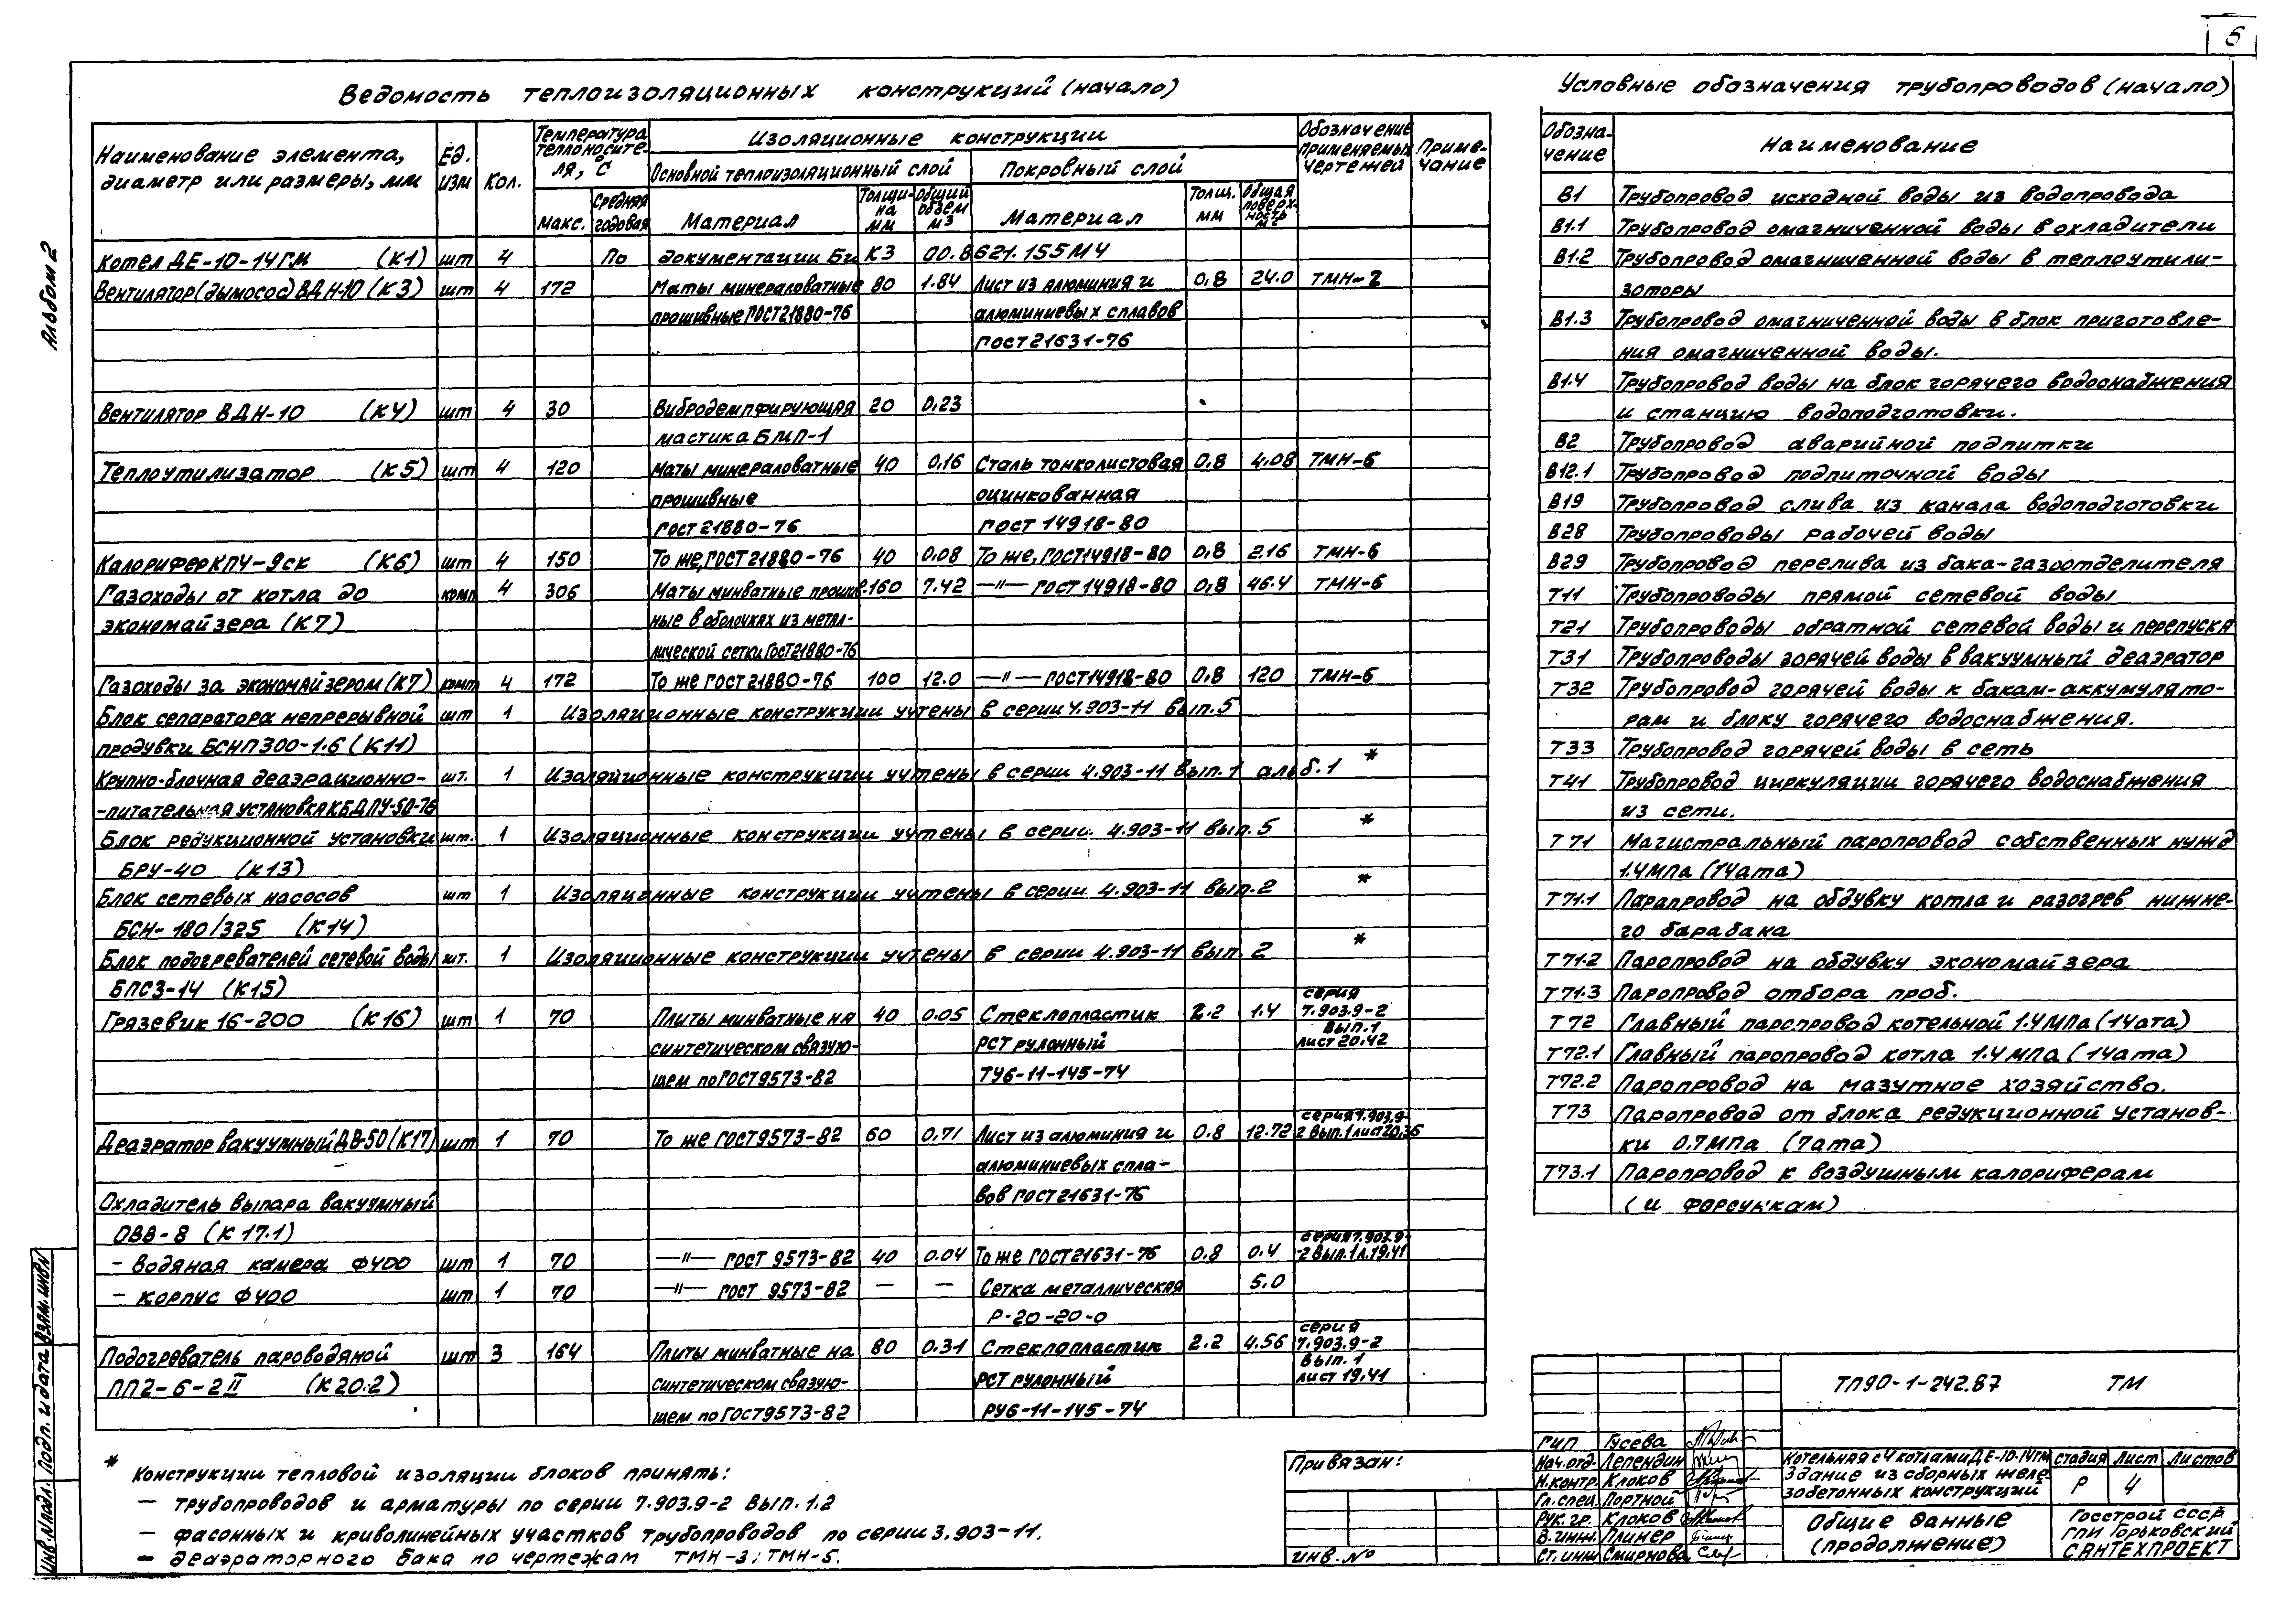 5
Альбом 2
Ведомость теплоизоляционных конструкций (начало)
Наименование элемента, диаметр или размеры, мм | Ед. изм | Кол. | Температура теплоносителя, °С | Изоляционные конструкции | Обозначение применяемых чертежей | Примечание
Основной теплоизоляционный слой | Покровный слой
макс. | Средняя годовая | Материал | Толщина мм | Общий объем м3 | Материал | Толщ. мм | Общая поверхность м2
Котел ДЕ-10-14ГМ (К1) шт 4 По документации БиКЗ 00.8621.155МЧ
Вентилятор (дымосос) ВДН-10 (К3) шт 4 172 Маты минераловатные 80 1.84 Лист из алюминия и 0,8 24.0 ТМН-2
прошивные ГОСТ 21880-76 алюминиевых сплавов
ГОСТ 21631-76
Вентилятор ВДН-10 (К4) шт 4 30 Вибродемпфирующая 20 0.23
мастика БМП-1
Теплоутилизатор (К5) шт 4 120 Маты минераловатные 40 0.16 Сталь тонколистовая 0.8 4.08 ТМН-6
прошивные оцинкованная
ГОСТ 21880-76 ГОСТ 14918-80
Калорифер КПЧ-9ск (К6) шт 4 150 То же, ГОСТ 21880-76 40 0.08 То же, ГОСТ 14918-80 0,8 2.16 ТМН-6
Газоходы от котла до комп 4 306 Маты минватные прошив- 160 7.42 —"— ГОСТ 14918-80 0,8 46.4 ТМН-6
экономайзера (К7) ные в оболочках из метал-
лической сетки ГОСТ 21880-76
Газоходы за экономайзером (К7) комп 4 172 То же ГОСТ 21880-76 100 12.0 —"— ГОСТ 14918-80 0.8 120 ТМН-6
Блок сепаратора непрерывной шт 1 Изоляционные конструкции учтены в серии 4.903-11 вып.5
продувки БСНП300-1.6 (К11)
Крупно-блочная деаэрационно- шт. 1 Изоляционные конструкции учтены в серии 4.903-11 вып.1 альб.1 *
-питательная установка КБДПУ-50-76
Блок редукционной установки шт. 1 Изоляционные конструкции учтены в серии. 4.903-11 вып.5 *
БРУ-40 (К13)
Блок сетевых насосов шт 1 Изоляционные конструкции учтены в серии 4.903-11 вып.2 *
БСН-180/325 (К14)
Блок подогревателей сетевой воды шт. 1 Изоляционные конструкции учтены в серии 4.903-11 вып. 2 *
БПСЗ-14 (К15)
Грязевик 16-200 (К16) шт 1 70 Плиты минватные на 40 0.05 Стеклопластик 2.2 1.4 серия 7.903.9-2 вып.1 лист 20,42
синтетическом связую- РСТ рулонный
щем по ГОСТ 9573-82 ТУ6-11-145-74
Деаэратор вакуумный ДВ-50 (К17) шт 1 70 То же ГОСТ 9573-82 60 0.71 Лист из алюминия и 0.8 12.72 серия 7.903.9-2 вып.1 лист 20,36
алюминиевых спла-
Охладитель выпара вакуумный вов ГОСТ 21631-76
ОВВ-8 (К17.1)
- водяная камера ф400 шт 1 70 —"— ГОСТ 9573-82 40 0.04 То же ГОСТ 21631-76 0.8 0.4 серия 7.903.9-2 вып.1 л.19,41
- корпус ф400 шт 1 70 —"— ГОСТ 9573-82 — — Сетка металлическая 5.0
Р-20-20-0
Подогреватель пароводяной шт 3 164 Плиты минватные на 80 0.31 Стеклопластик 2.2 4.56 серия 7.903.9-2 вып. 1 лист 19,41
ПП2-6-2II (К20.2) синтетическом связую- РСТ рулонный
щем по ГОСТ 9573-82 РУ6-11-145-74
* Конструкции тепловой изоляции блоков принять:
— трубопроводов и арматуры по серии 7.903.9-2 вып.1.2
— фасонных и криволинейных участков трубопроводов по серии 3.903-11.
— деаэраторного бака по чертежам ТМН-3; ТМН-5.
Условные обозначения трубопроводов (начало)
Обозначение | Наименование
В1 Трубопровод исходной воды из водопровода
В1.1 Трубопровод омагниченной воды в охладители
В1.2 Трубопровод омагниченной воды в теплоутили-
заторы
В1.3 Трубопровод омагниченной воды в блок приготовле-
ния омагниченной воды.
В1.4 Трубопровод воды на блок горячего водоснабжения
и станцию водоподготовки.
В2 Трубопровод аварийной подпитки
В12.1 Трубопровод подпиточной воды
В19 Трубопровод слива из канала водоподготовки
В28 Трубопроводы рабочей воды
В29 Трубопровод перелива из бака-газоотделителя
Т11 Трубопроводы прямой сетевой воды
Т21 Трубопроводы обратной сетевой воды и перепуска
Т31 Трубопроводы горячей воды в вакуумный деаэратор
Т32 Трубопровод горячей воды к бакам-аккумулято-
рам и блоку горячего водоснабжения.
Т33 Трубопровод горячей воды в сеть
Т41 Трубопровод циркуляции горячего водоснабжения
из сети.
Т71 Магистральный паропровод собственных нужд
1.4МПа (14ата)
Т71.1 Паропровод на обдувку котла и разогрев нижне-
го барабана
Т71.2 Паропровод на обдувку экономайзера
Т71.3 Паропровод отбора проб.
Т72 Главный паропровод котельной 1.4МПа (14ата)
Т72.1 Главный паропровод котла 1.4МПа (14ата)
Т72.2 Паропровод на мазутное хозяйство.
Т73 Паропровод от блока редукционной установ-
ки 0.7МПа (7ата)
Т73.1 Паропровод к воздушным калориферам
(и форсункам)
Привязан:
Инв.№
ГИП Гусева
Нач.отд. Лепендин
Н.контр. Клоков
Гл.спец. Портной
Рук.гр. Клоков
В.инж. Плинер
Ст.инж Смирнова
ТП90-1-242.87 ТМ
Котельная с 4 котлами ДЕ-10-14ГМ
Здание из сборных желе-
зобетонных конструкций
стадия Лист Листов
Р 4
Общие данные
(продолжение)
Госстрой СССР
ГПИ Горьковский
САНТЕХПРОЕКТ
Инв.Nподл. Подп. и дата Взам.инвN